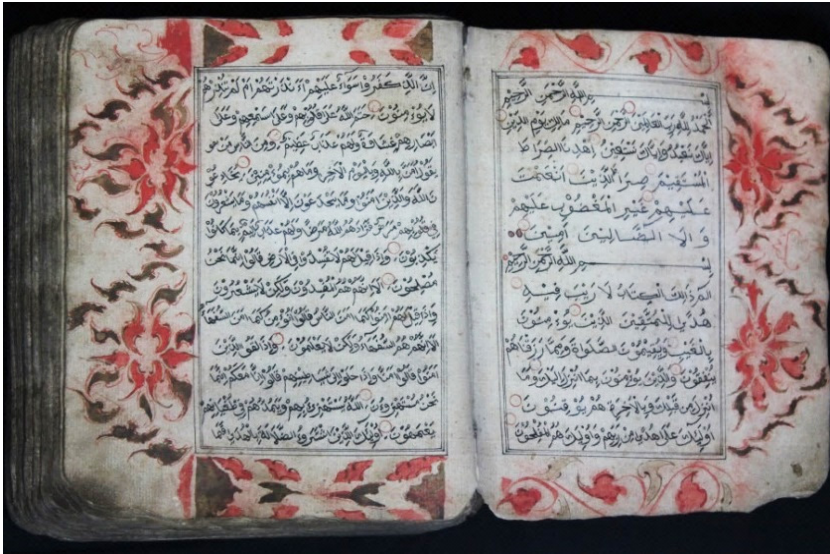 بسم الله الرحمن الرحيم
الحمد لله رب العالمين الرحمن الرحيم مالك يوم الدين
إياك نعبد وإياك نستعين اهدنا الصراط
المستقيم صراط الذين أنعمت
عليهم غير المغضوب عليهم
ولا الضالين آمين
بسم الله الرحمن الرحيم
الم ذلك الكتاب لا ريب فيه
هدى للمتقين الذين يؤمنون
بالغيب ويقيمون الصلوة ومما رزقناهم
ينفقون والذين يؤمنون بما أنزل إليك وما
أنزل من قبلك وبالآخرة هم يوقنون
أولئك على هدى من ربهم وأولئك هم المفلحون
إن الذين كفروا سواء عليهم ءأنذرتهم أم لم تنذرهم
لا يؤمنون ختم الله على قلوبهم وعلى سمعهم وعلى
أبصارهم غشاوة ولهم عذاب عظيم ومن الناس من
يقول آمنا بالله وباليوم الآخر وما هم بمؤمنين يخادعو
ن الله والذين آمنوا وما يخدعون إلا أنفسهم وما يشعرون
في قلوبهم مرض فزادهم الله مرضا ولهم عذاب أليم بما كانوا
يكذبون وإذا قيل لهم لا تفسدوا في الأرض قالوا إنما نحن
مصلحون ألا إنهم هم المفسدون ولكن لا يشعرون
وإذا قيل لهم آمنوا كما آمن الناس قالوا أنؤمن كما آمن السفهاء
ألا إنهم هم السفهاء ولكن لا يعلمون وإذا لقوا الذين
آمنوا قالوا آمنا وإذا خلوا إلى شياطينهم قالوا إنا معكم إنما
نحن مستهزؤن الله يستهزئ بهم ويمدهم في طغيانهم
يعمهون أولئك الذين اشتروا الضلالة بالهدى فما